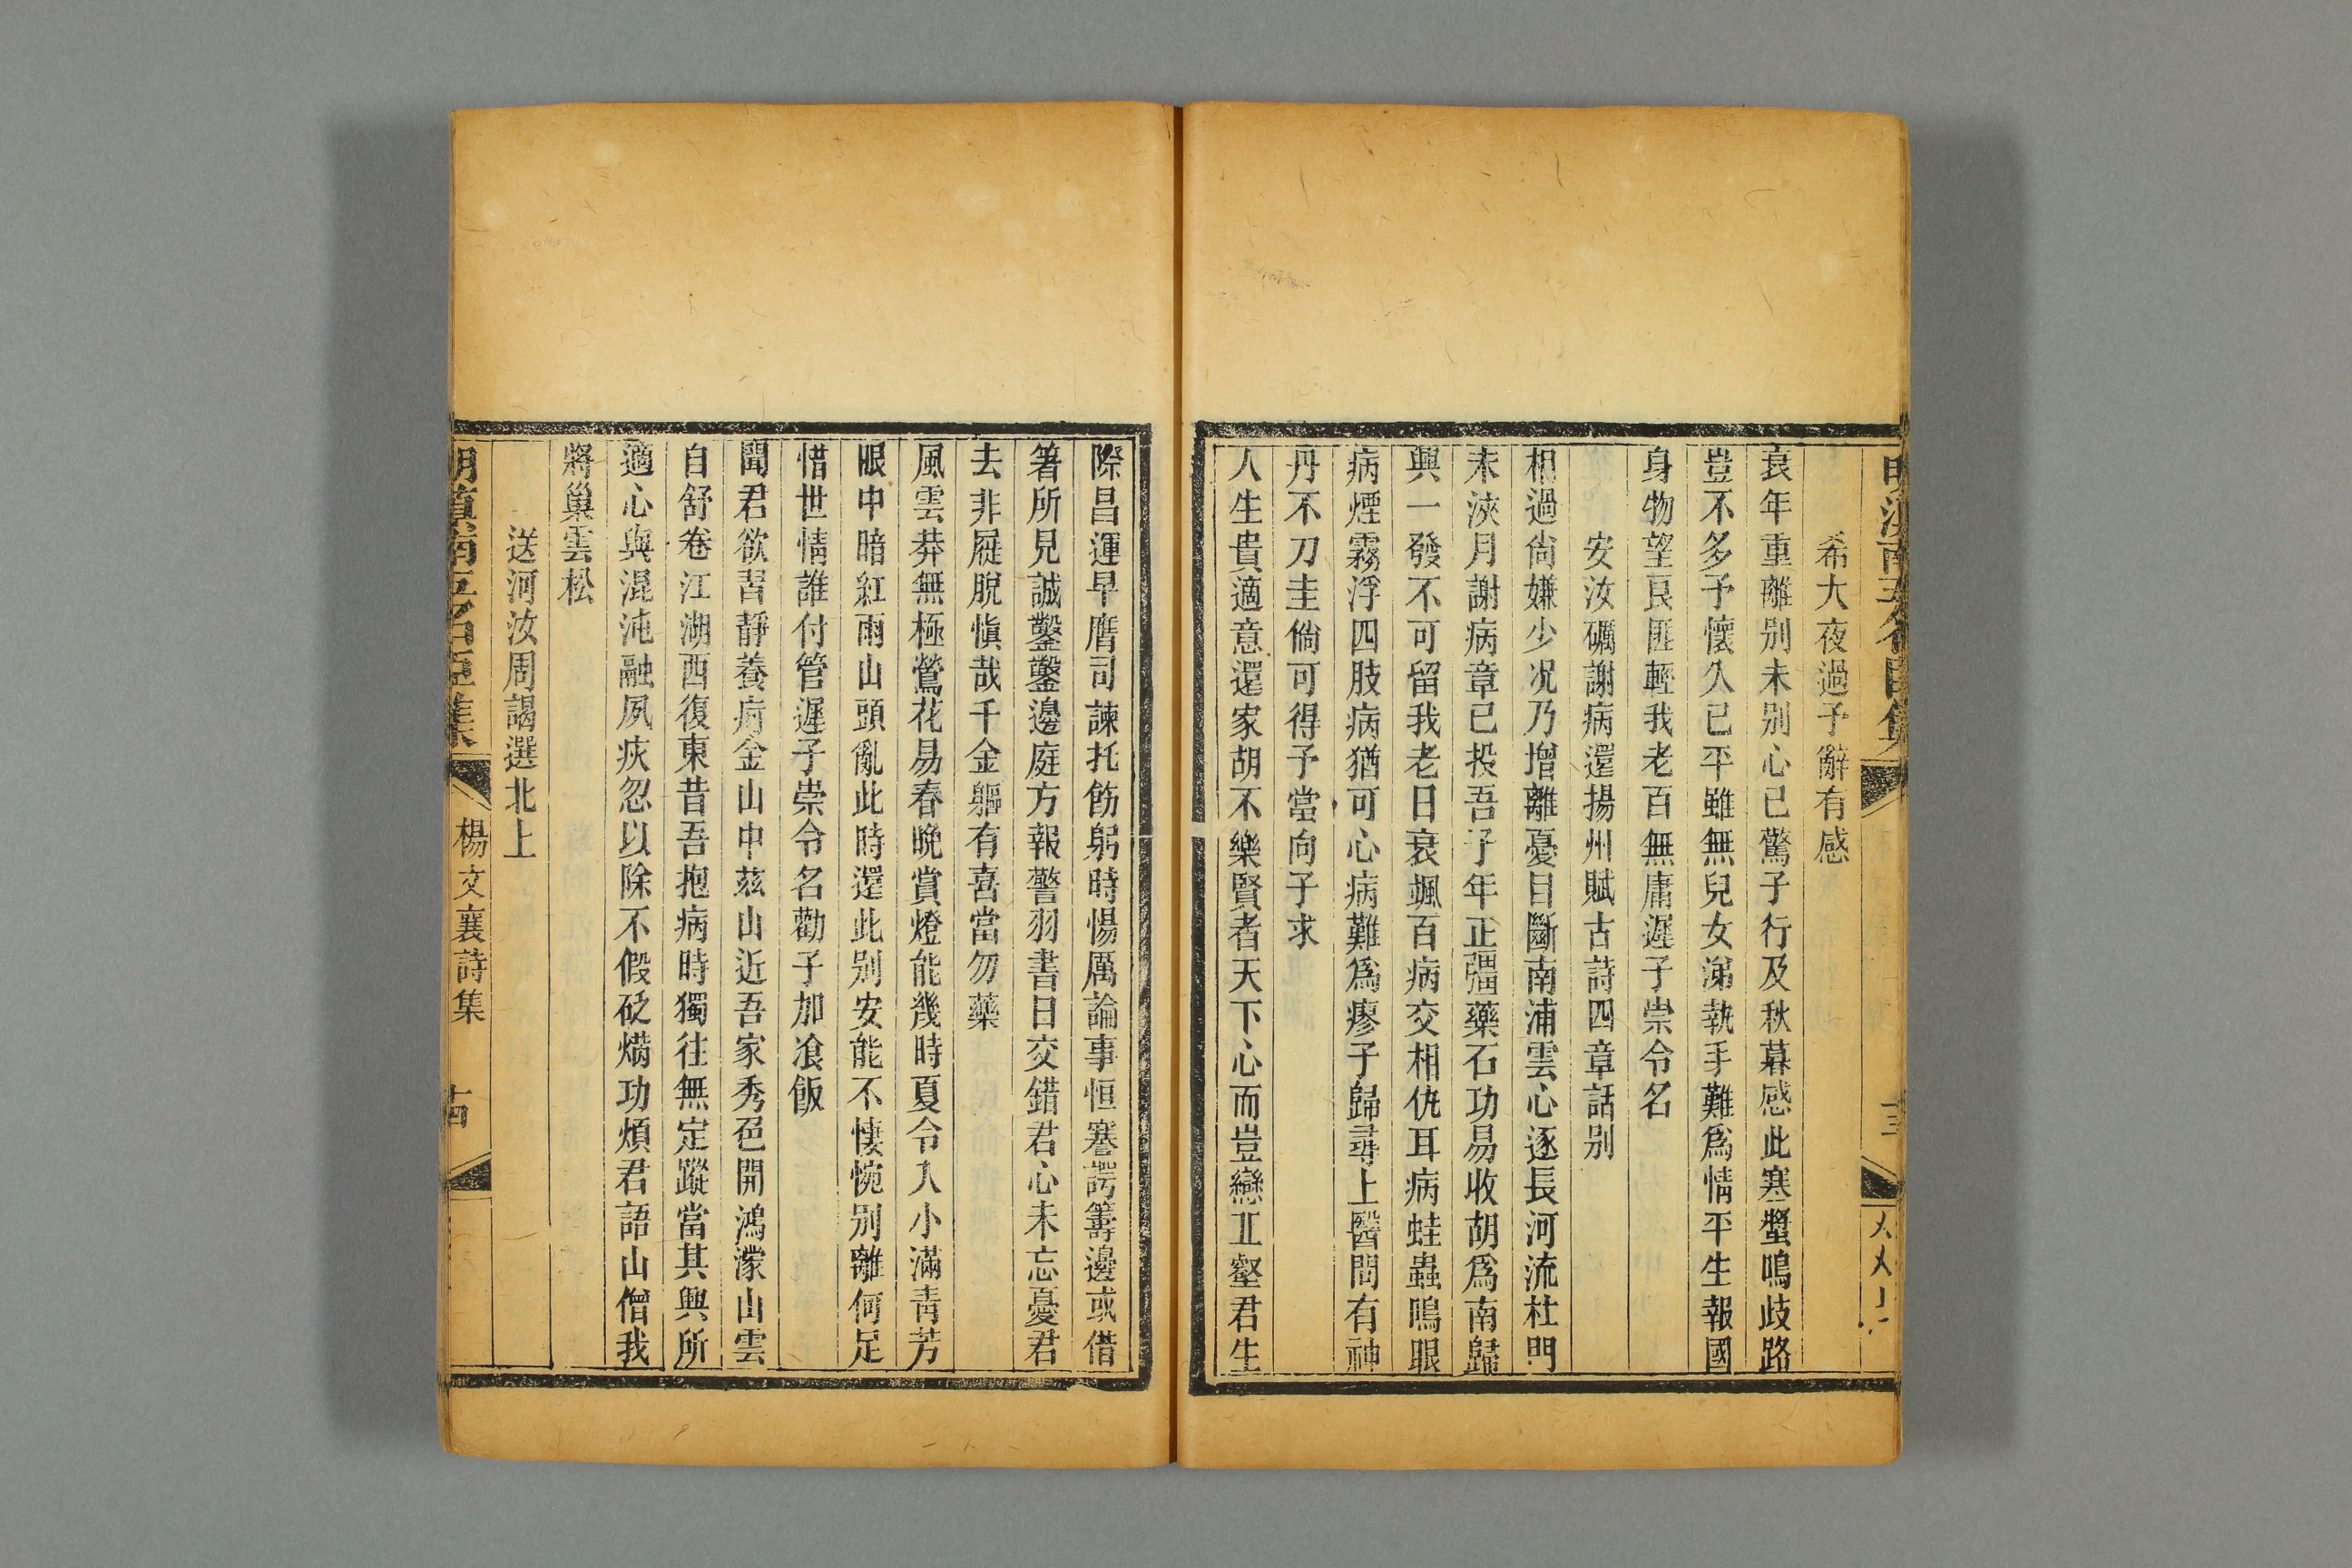 希大夜過予辭有感
衰年重離别未别心已驚子行及秋暮感此寒螿鳴歧路
豈不多予懷久已平雖無兒女涕執手難爲情平生報國
身物望良匪輕我老百無庸遲子崇令名
安汝礪謝病還揚州賦古詩四章話别
相過尙嫌少况乃增離憂目斷南浦雲心逐長河流杜門
未浹月謝病章已投吾子年正彊藥石功易收胡爲南歸
興一發不可留我老日衰颯百病交相仇耳病蛙蟲鳴眼
病煙霧浮四肢病猶可心病難爲瘳子歸尋上醫問有神
丹不刀圭倘可得予當向子求
人生貴適意還家胡不樂賢者天下心而豈戀丘壑君生
際昌運早膺司諫托飭躬時惕厲論事恒謇諤籌邊或借
箸所見誠鑿鑿邊庭方報警羽書日交錯君心未忘憂君
去非屣脫愼哉千金軀有喜當勿藥
風雲莽無極鶯花易春晚賞燈能幾時夏令入小滿靑芳
眼中暗紅雨山頭亂此時還此别安能不悽惋别離何足
惜世情誰付管遲子崇令名勸子加飡飯
聞君欲習靜養疴金山中兹山近吾家秀色開鴻濛山雲
自舒卷江湖西復東昔吾抱病時獨往無定蹤當其興所
適心與混沌融夙疢忽以除不假砭焫功煩君語山僧我
將巢雲松
送河汝周謁選北上
楊文襄詩集